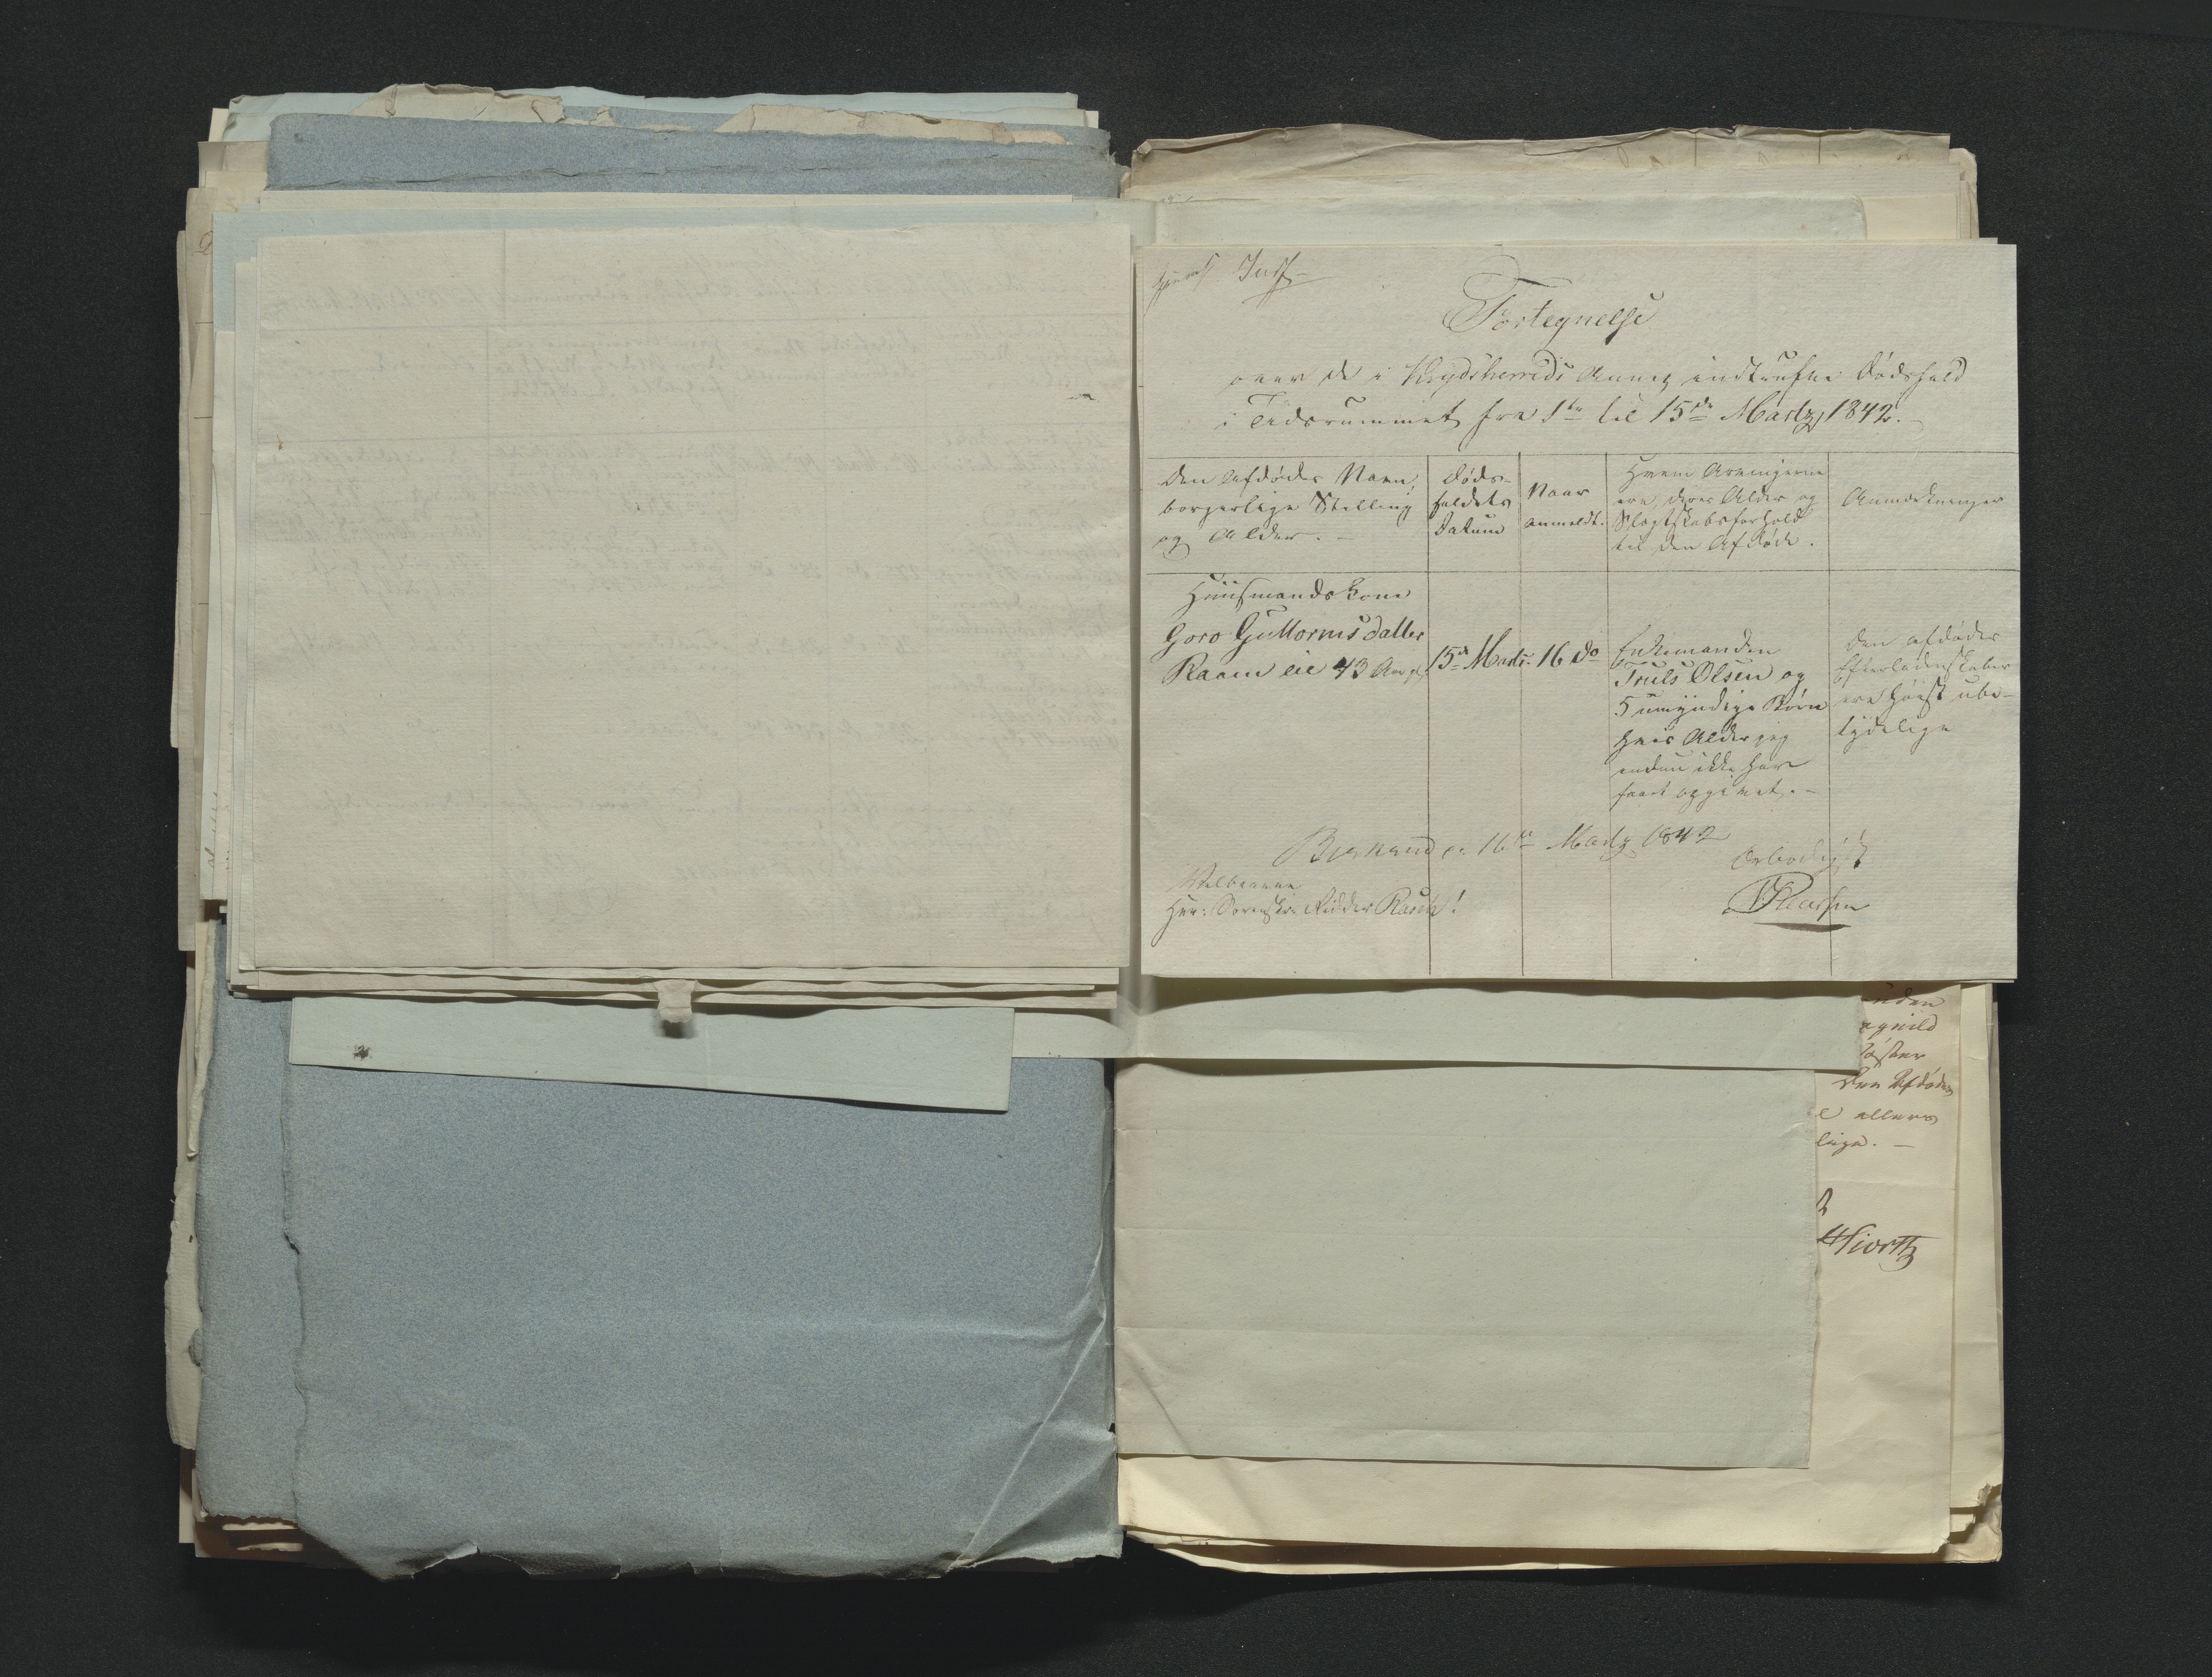 Fortegnelse
over de i Krydsherreds Annex indtrufne Dødsfald
i Tidsrummet fra 1ste til 15de Martz 1842.
Den Afdødes Navn,
borgerlige Stilling
og Alder. –
Døds-
faldets
Datum
Naar
anmeldt.
Hvem Arvingerne
ere, deres Alder og
Slægtskabsforhold
til den Afdøde.
Anmærkninger
Huusmandskone
Goro Guttormsdatter
Raaen eie 43 Aar gl.
15de Marts.
16 do
Enkemanden
Truls Olsen og
5 umyndige Børn
hvis Alder jeg
endnu ikke har
faaet opgivet. –
Den afdødes
Efterladenskaber
ere høist ube-
tydelige
16de Martz 1842
Ærbødigst
Velbaarne
Herr Sorenskr: Ridder Rasch!
den Afdødes
ellers
Hiorth